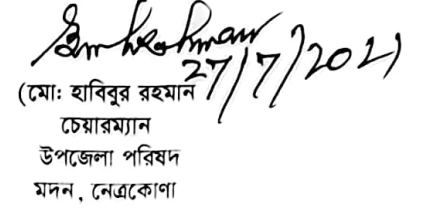 27/7/2021
(মো: হাবিবুর রহমান
চেয়ারম্যান
উপজেলা পরিষদ
মদন, নেত্রকোণা